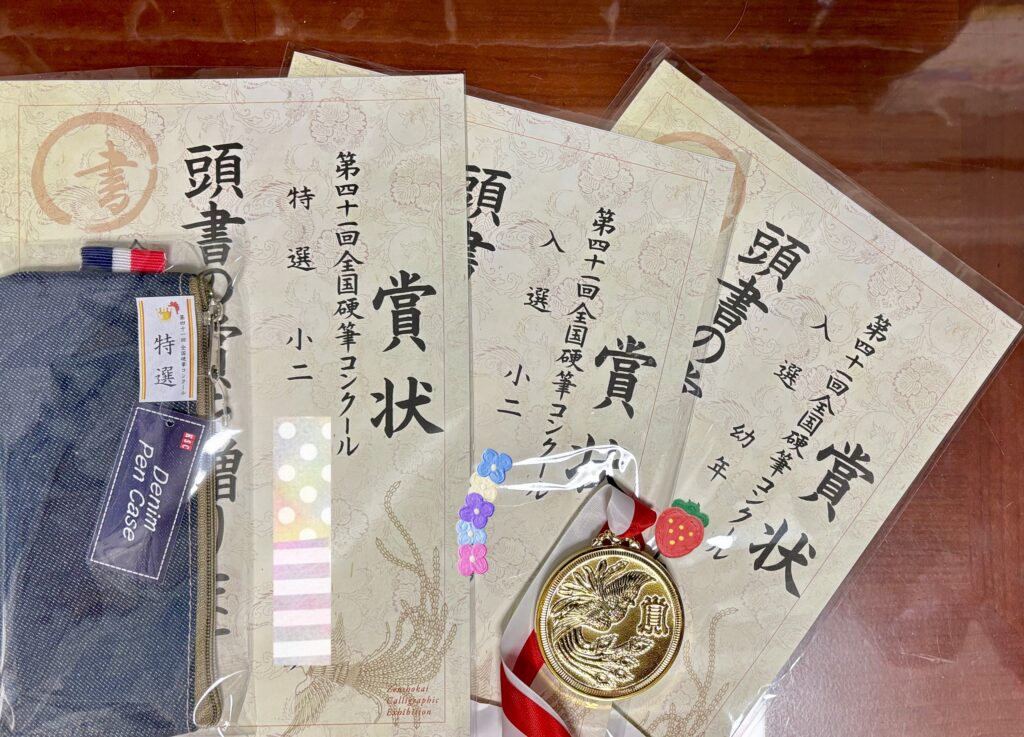 書
賞状
第四十一回全国硬筆コンクール
特選 小二
頭書の
Zenshokai
Calligraphic
Exhibition
第四十一回全国硬筆コンクール
特選
HSC
Denim
Pen Case
賞状
第四十一回全国硬筆コンクール
入選 小二
頭書
賞状
第四十一回全国硬筆コンクール
入選 幼年
頭書の
賞